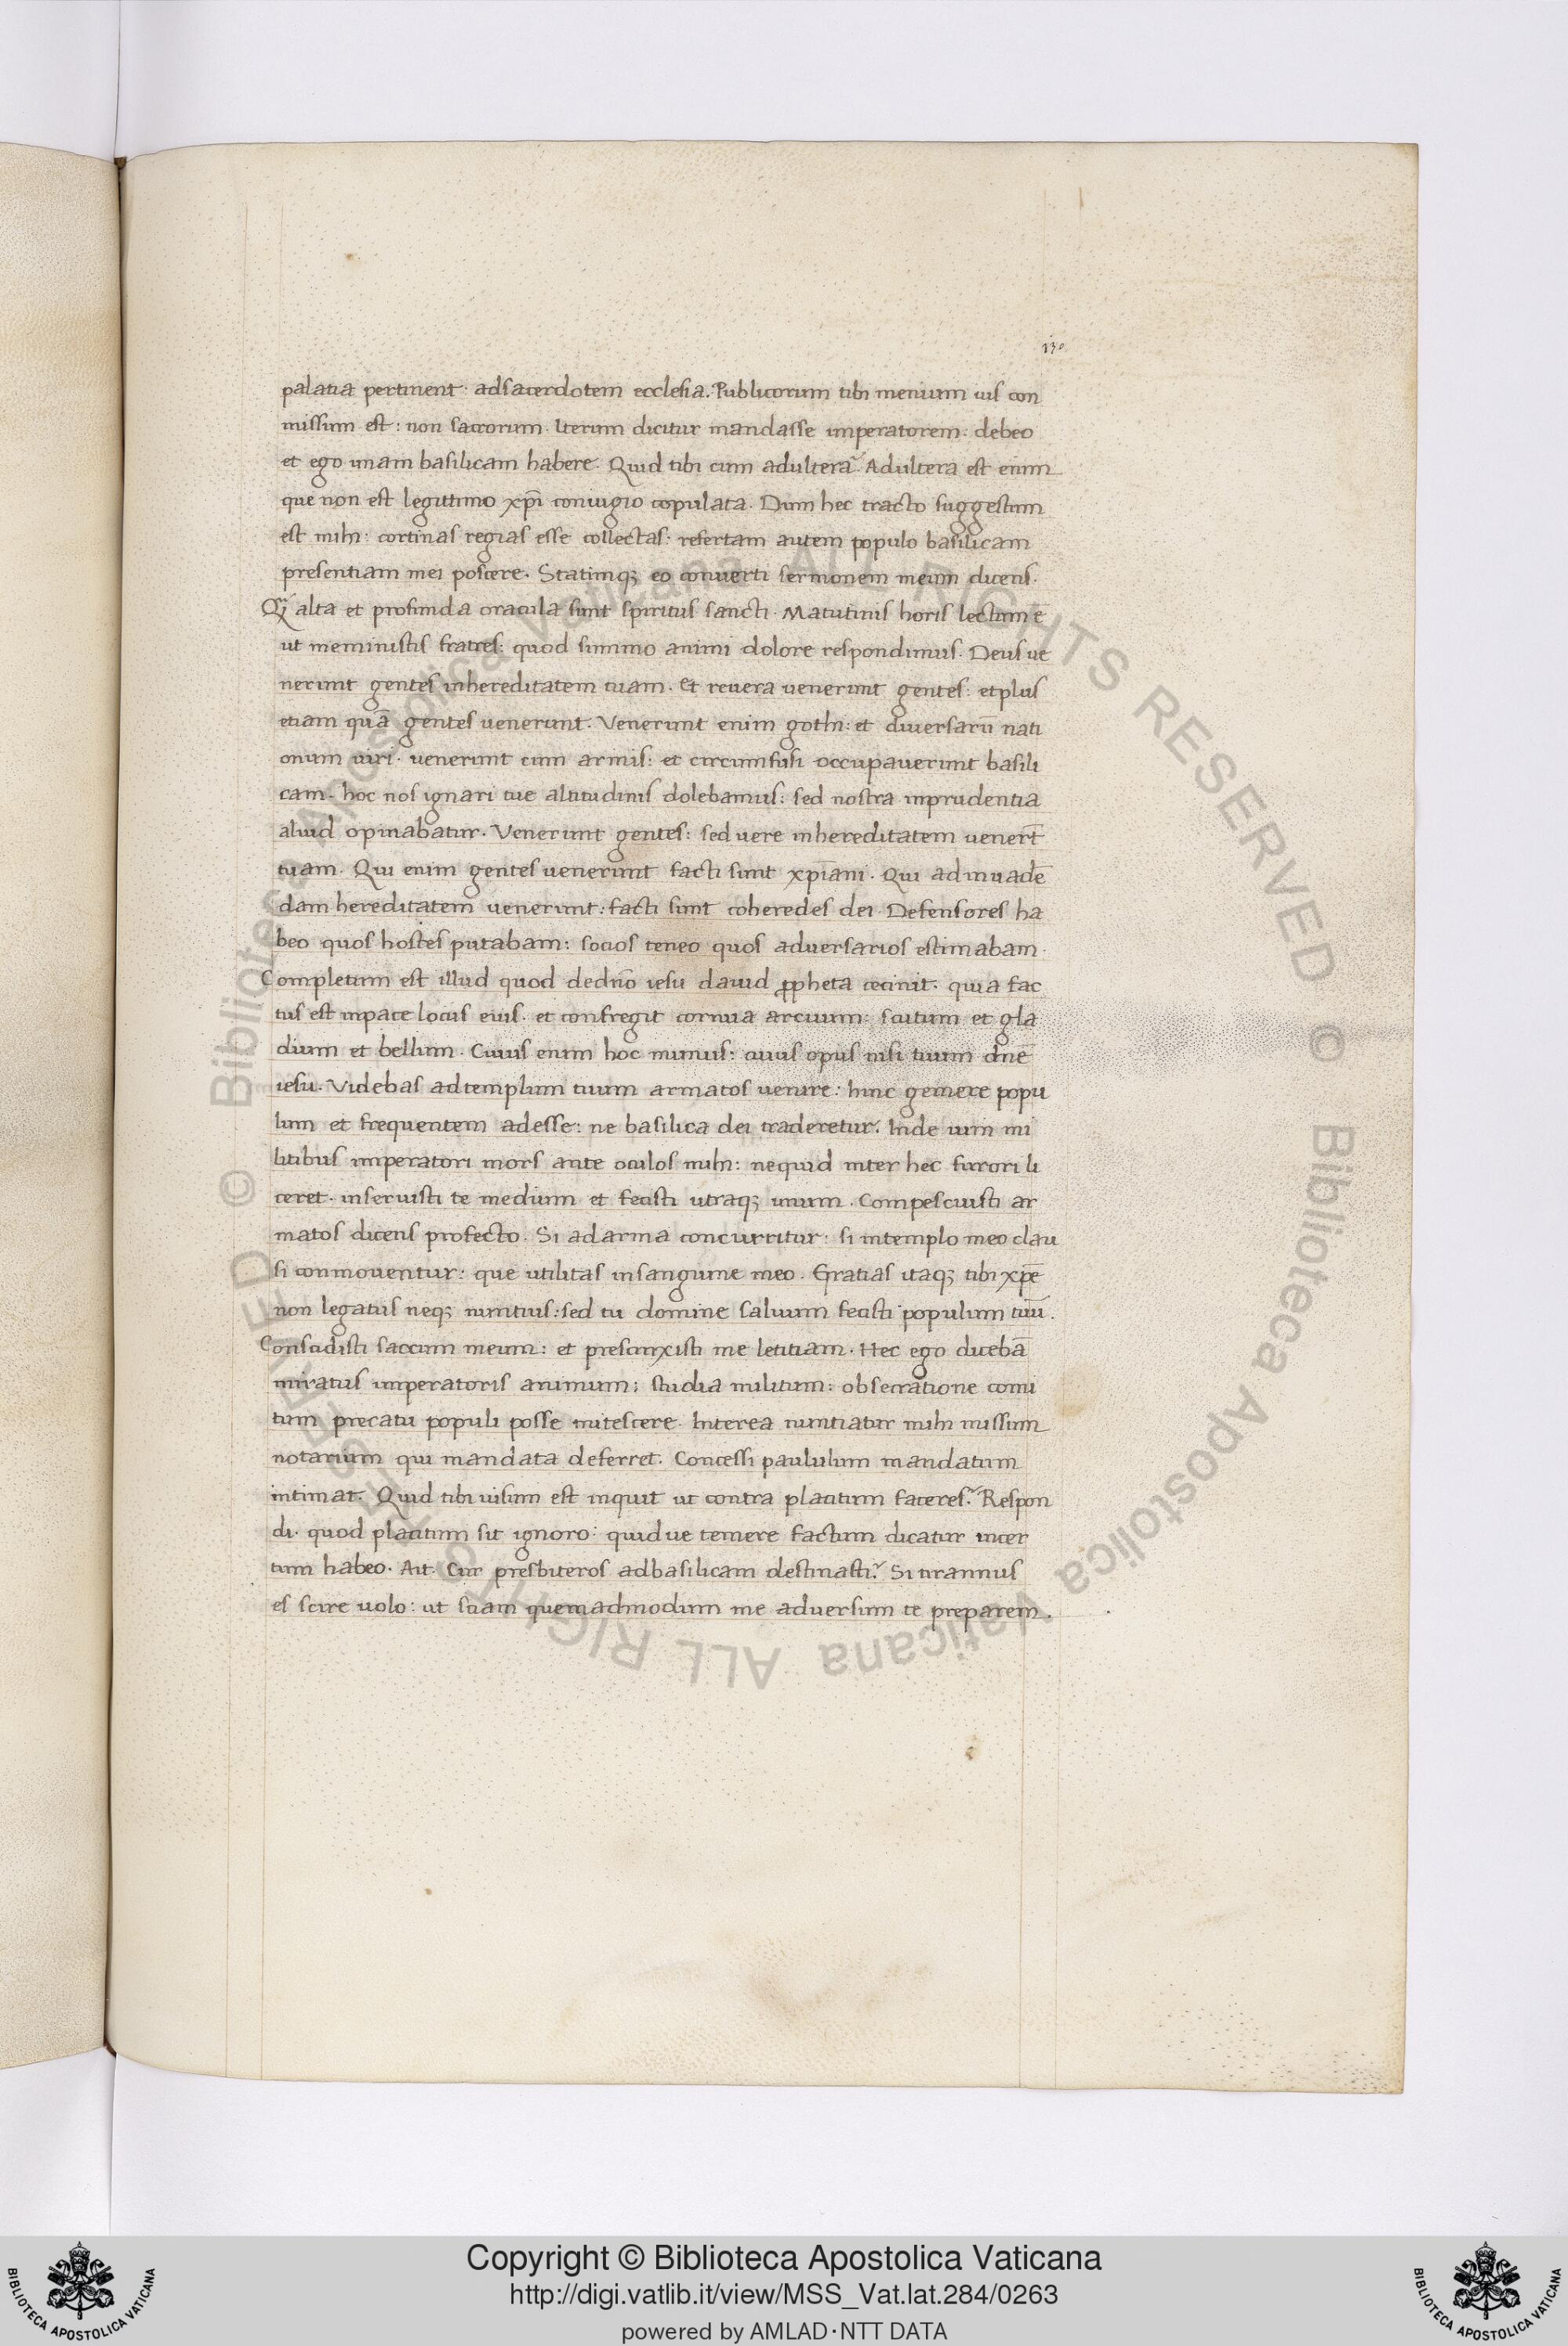 130
palatia pertinent· adsacerdotem ecclesia. Publicorum tibi menium ius con
missum est: non sacrorum. Iterum dicitur mandasse imperatorem: debeo
et ego unam basilicam habere. Quid tibi cum adultera? Adultera est enim
que non est legittimo xp̄i coniugio copulata. Dum hec tracto suggestum
est mihi: cortinas regias esse collectas: refertam autem populo basilicam
presentiam mei poscere. Statimq; eo converti sermonem meum dicens.
Q̃ alta et profunda oracula sunt spiritus sancti. Matutinis horis lectum ē
ut meministis fratres: quod summo animi dolore respondimus. Deus ve
nerunt gentes inhereditatem tuam. Et revera venerunt gentes: etplus
etiam quā gentes venerunt. Venerunt enim gothi: et diversarū nati
onum viri. venerunt cum armis: et circumfusi occupaverunt basili
cam. hoc nos ignari tue altitudinis dolebamus: sed nostra inprudentia
aliud opinabatur. Venerunt gentes: sed vere inhereditatem venert̄
tuam. Qui enim gentes venerunt facti sunt xp̄iani. Qui ad invadē
dam hereditatem venerunt: facti sunt coheredes dei. Defensores ha
beo quos hostes putabam: socios teneo quos adversarios estimabam.
Completum est illud quod dedn̄o iesu david ꝓpheta cecinit. quia fac
tus est inpace locus eius. et confregit cornua arcuum: scutum et gla
dium et bellum. Cuius enim hoc munus: cuius opus nisi tuum dn̄e
iesu. Videbas adtemplum tuum armatos venire: hinc gemere popu
lum et frequentem adesse: ne basilica dei traderetur. Inde vim mi
litibus imperatori mors ante oculos mihi: nequid inter hec furori li
ceret. inseruisti te medium et fecisti utraq; unum. Compescuisti ar
matos dicens profecto. Si adarma concurritur: si intemplo meo clau
si conmoventur: que utilitas insanguine meo. Gratias itaq; tibi xp̄e
non legatus neq; nuntius: sed tu domine salvum fecisti populum tuū.
Conscidisti saccum meum: et prescinxisti me letitiam. Hec ego dicebā
miratus imperatoris animum: studia militum: obsecratione comi
tum precatu populi posse mitescere. Interea nuntiatur mihi missum
notarium qui mandata deferret. Concessi paululum mandatum
intimat. Quid tibi visum est inquit ut contra placitum faceres? Respon
di. quod placitum sit ignoro: quidve temere factum dicatur incer
tum habeo. Ait. Cur presbiteros adbasilicam destinasti? Si tirannus
es scire volo: ut sciam quemadmodum me adversum te preparem.
© Biblioteca Apostolica Vaticana ALL RIGHTS RESERVED © Biblioteca Apostolica Vaticana ALL RIGHTS RESERVED
BIBLIOTECA APOSTOLICA VATICANA
Copyright © Biblioteca Apostolica Vaticana
http://digi.vatlib.it/view/MSS_Vat.lat.284/0263
powered by AMLAD·NTT DATA
BIBLIOTECA APOSTOLICA VATICANA